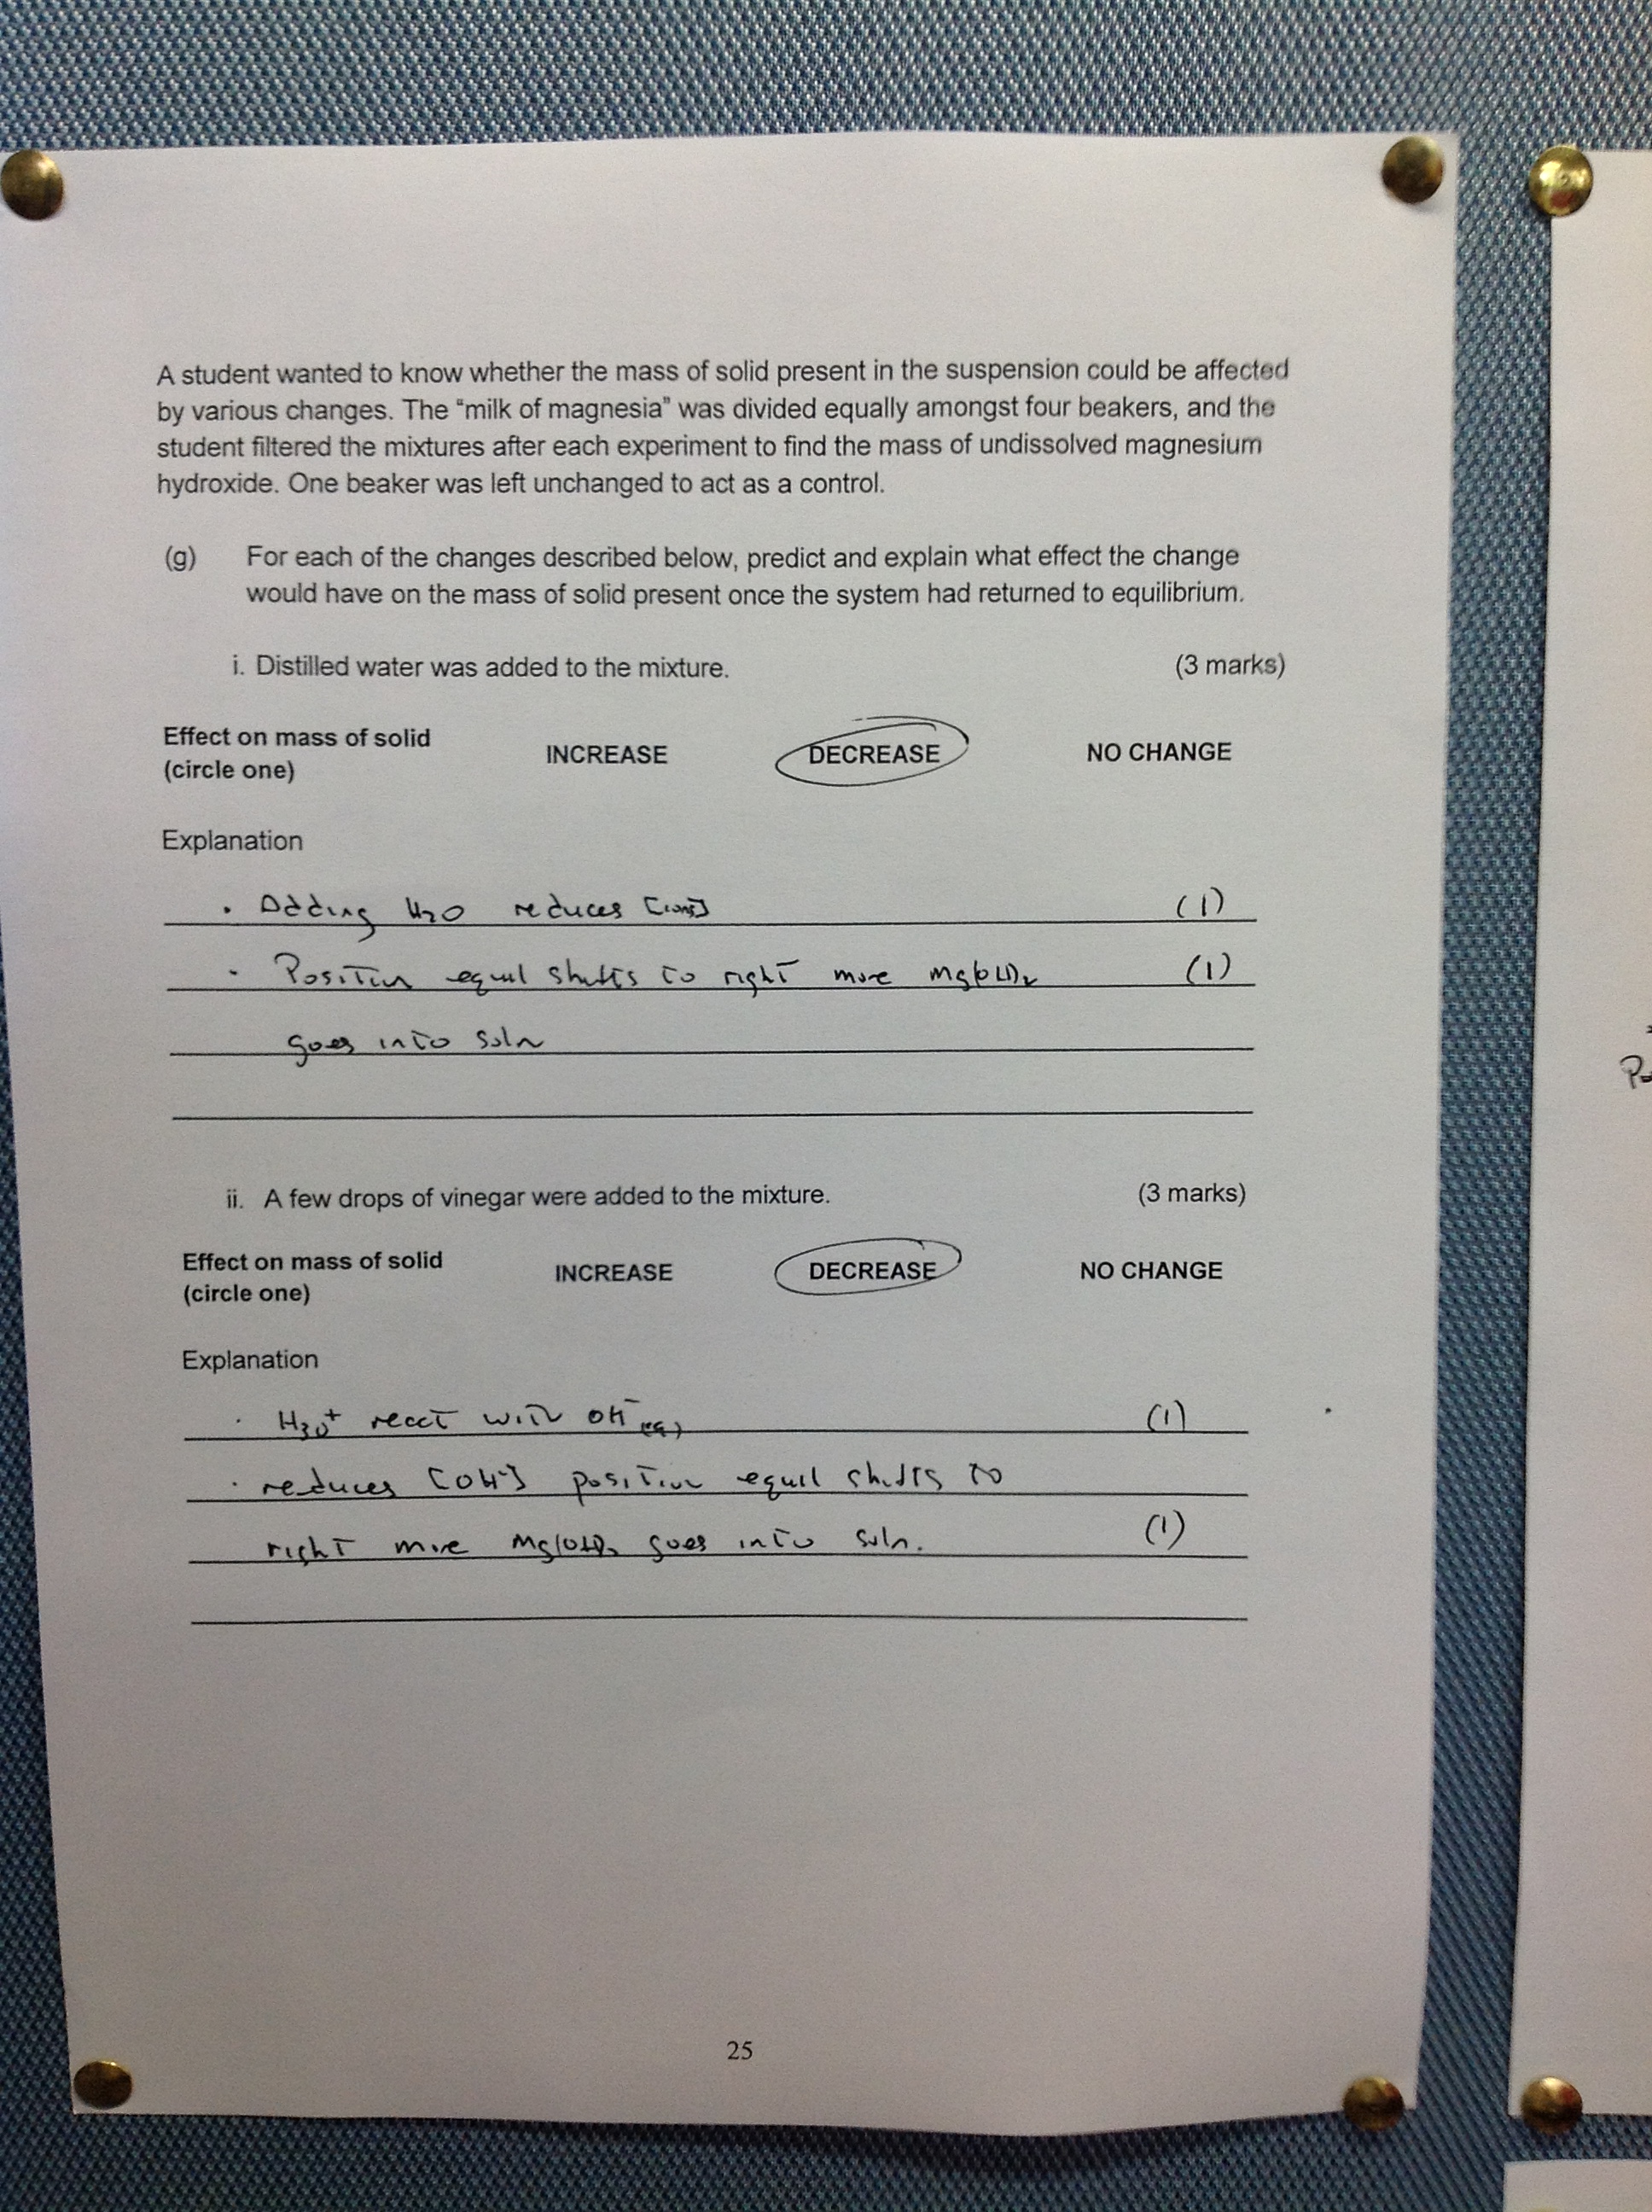 A student wanted to know whether the mass of solid present in the suspension could be affected
by various changes. The “milk of magnesia” was divided equally amongst four beakers, and the
student filtered the mixtures after each experiment to find the mass of undissolved magnesium
hydroxide. One beaker was left unchanged to act as a control.
(g) For each of the changes described below, predict and explain what effect the change
would have on the mass of solid present once the system had returned to equilibrium.
i. Distilled water was added to the mixture. (3 marks)
Effect on mass of solid
(circle one) INCREASE DECREASE NO CHANGE
Explanation
· Adding H2O reduces [ions] (1)
· Position equil shifts to right more Mg(OH)2 (1)
goes into soln
ii. A few drops of vinegar were added to the mixture. (3 marks)
Effect on mass of solid
(circle one) INCREASE DECREASE NO CHANGE
Explanation
· H3O+ react with OH-(aq) (1)
· reduces [OH-] position equil shifts to
right more Mg(OH)2 goes into soln. (1)
25